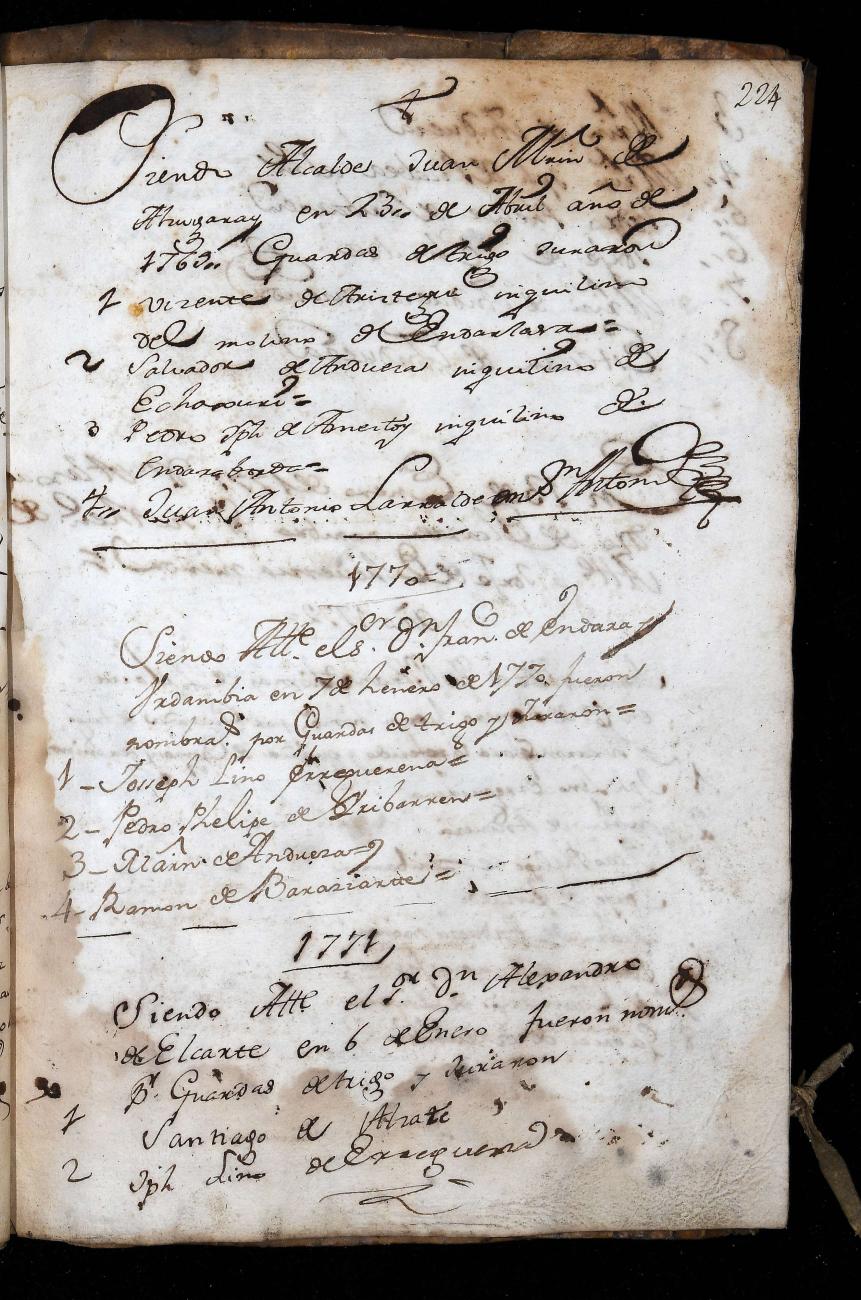 224
Siendo Alcalde Juan Mrñ de
en 23,, de Abril año de
1769,, Guardas de trigo Juraron
1 vizente de inquilino
del molino de Endarlaza=
2 Salvador de Andueza inquilino de
3 Pedro Jph de inquilino de
Endara borda=
4,, Juan Antonio Larralde
1770=
Siendo Atte el sor Dn fran.co de Endara y
Vrdanibia en 7 de henero de 1770, fueron
nombrads por Guardas de trigo y Juraron=
1 - Josseph Lino Erreguerena=
2 - Pedro Phelipe de Iribarren=
3 - Marn de Andueza=
4 - Ramon de Baraziartte=
1771
Siendo Atte el sor Dn Alexandro
de Elcarte en 6 de Enero fueron noms
pr Guardas de trigo y Juraron
1 Santiago de Alzate
2 Jph Lino de Erreguerena